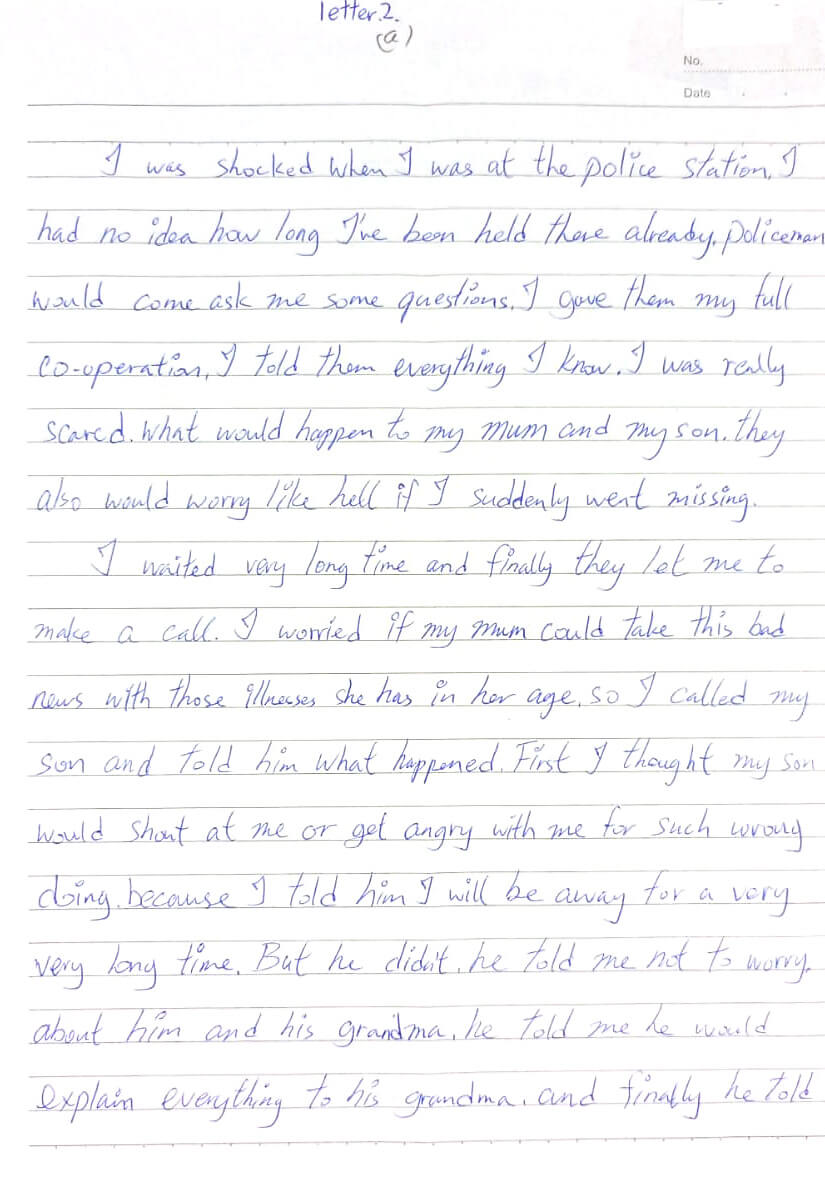 letter.2.
(a)
No.
Date
I was shocked when I was at the police station. I
had no idea how long I've been held there already. policeman
would come ask me some questions. I gave them my full
co-operation, I told them everything I know. I was really
scared. What would happen to my mum and my son. they
also would worry like hell if I suddenly went missing.
I waited very long time and finally they let me to
make a call. I worried if my mum could take this bad
news with those illnesses she has in her age, so I called my
son and told him what happened. First I thought my son
would shout at me or get angry with me for such wrong
doing. because I told him I will be away for a very
very long time. But he didn't. he told me not to worry.
about him and his grandma. he told me he would
explain everything to his grandma. and finally he told